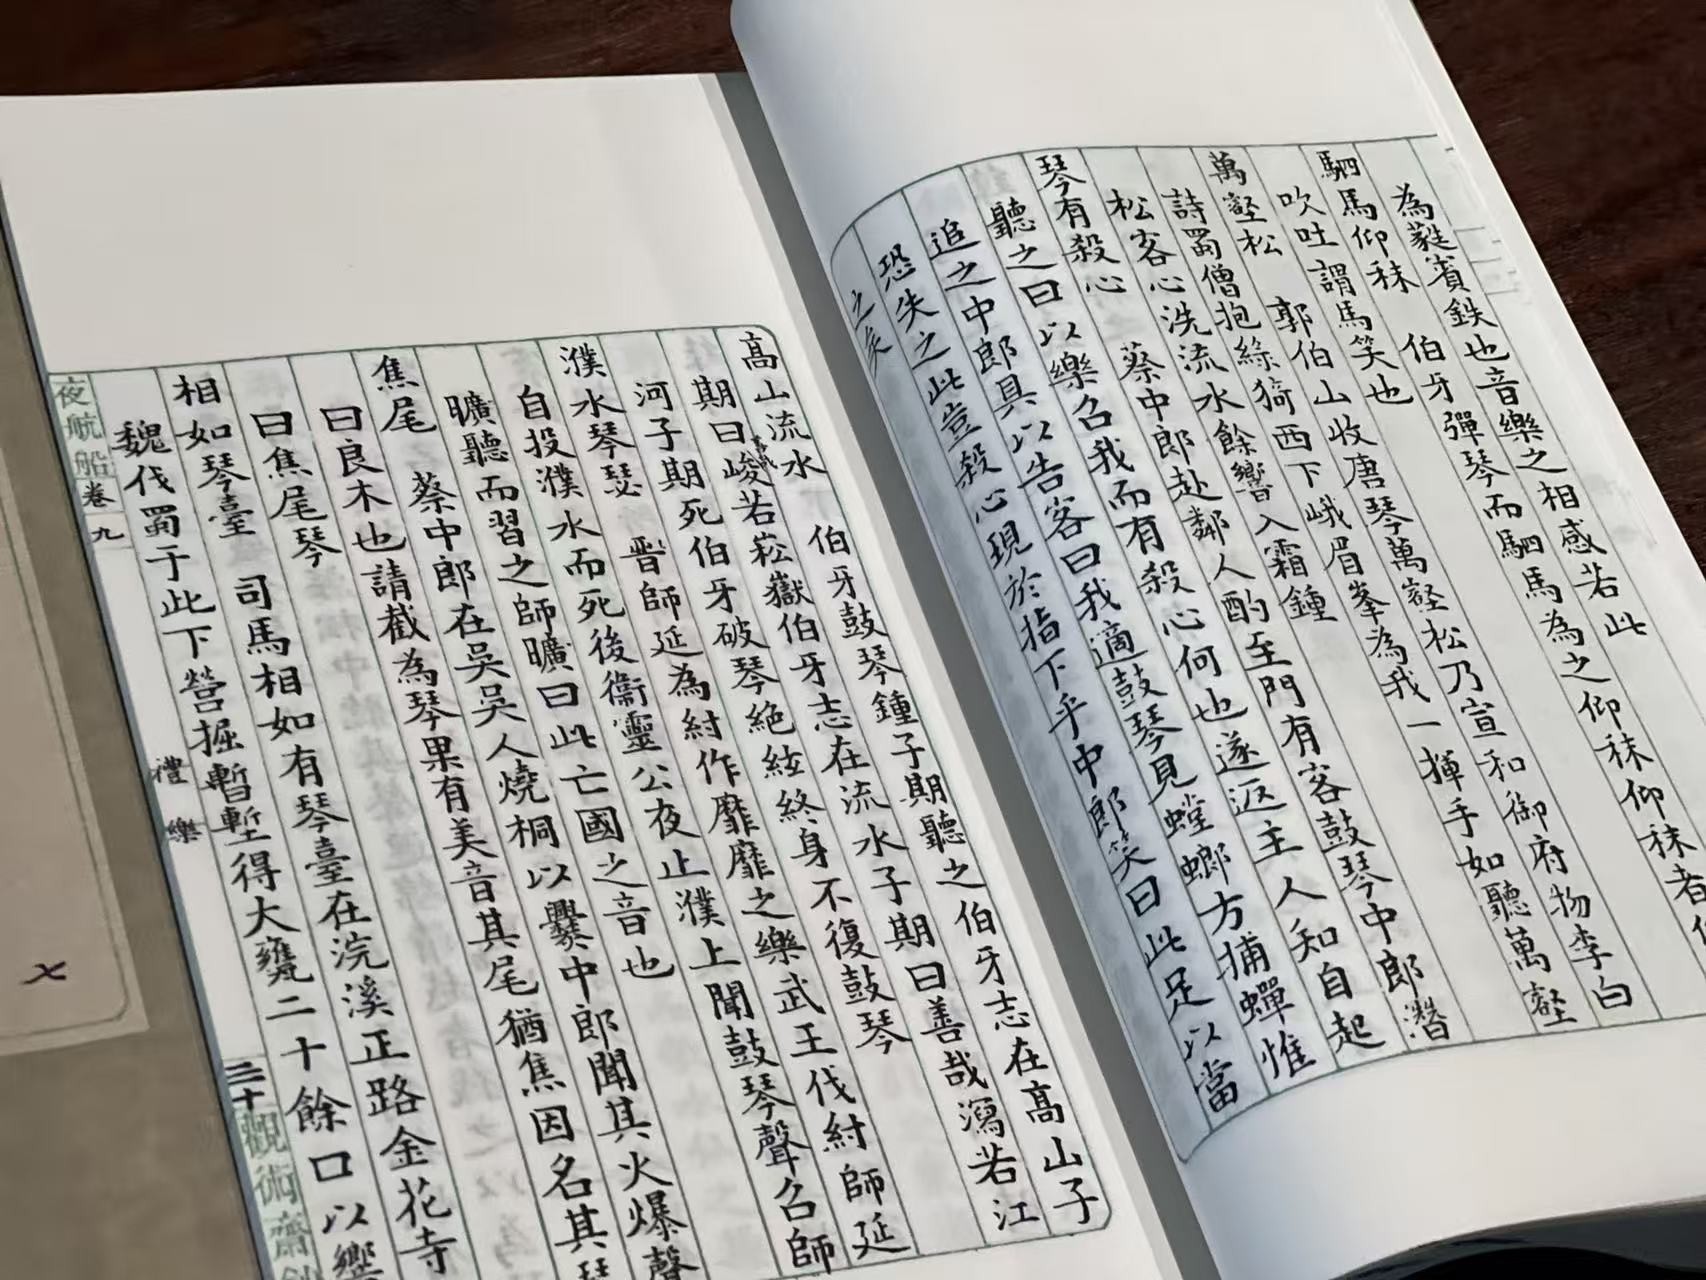 為蕤賓鉄也音樂之相感若此
駟馬仰秣 伯牙彈琴而駟馬為之仰秣仰秣者
吹吐謂馬笑也
萬壑松 郭伯山收唐琴萬壑松乃宣和御府物李白
詩蜀僧抱綠綺西下峨眉峯為我一揮手如聽萬壑
松客心洗流水餘響入霜鍾
琴有殺心 蔡中郎赴鄰人酌至門有客鼓琴中郎潛
聽之曰以樂名我而有殺心何也遂返主人知自起
追之中郎具以告客曰我適鼓琴見螳螂方捕蟬惟
恐失之此豈殺心現於指下乎中郎笑曰此足以當
之矣
高山流水 伯牙鼓琴鍾子期聽之伯牙志在高山子
期曰峻若崧嶽伯牙志在流水子期曰善哉瀉若江
河子期死伯牙破琴絶絃終身不復鼓琴
濮水琴瑟 晋師延為紂作靡靡之樂武王伐紂師延
自投濮水而死後衞靈公夜止濮上聞鼓琴聲名師
曠聽而習之師曠曰此亡國之音也
焦尾 蔡中郎在吳吳人燒桐以爨中郎聞其火爆聲
曰良木也請截為琴果有美音其尾猶焦因名其琴
曰焦尾琴
相如琴臺 司馬相如有琴臺在浣溪正路金花寺
魏伐蜀于此下營掘暫塹得大甕二十餘口以響
夜航船 卷九 禮樂 二十 觀術齋鈔
七